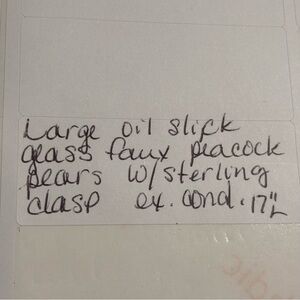 Large oil slick
glass faux peacock
pears w/ sterling
clasp ex. cond. 17"L